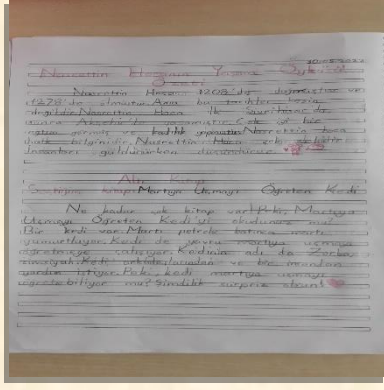 Nasrettin Hocanın Yaşam Öyküsü
Özeti
Nasrettin Hoca 1208'de doğmuştur ve
1278'de ölmüştür. Ama bu tarihler kesin
değildir. Nasrettin Hoca ilk
Akşehir'de Çok iyi bir
eğitim görmüş ve kadılık yapmıştır. Nasrettin hoca
halk bilginidir. Nasrettin Hoca çok
insanları güldürürken düşündürür.
Kitap: Martıya Uçmayı Öğreten Kedi
Ne kadar çok kitap var! Peki, Martıya
Uçmayı Öğreten Kedi'yi okudunuz mu?
Bir kedi var. Martı petrole batınca martı
yumurtluyor. Kedi de yavru martıya uçmayı
öğretmeye çalışıyor. Kedinin adı da Zorba,
simsiyah. Kedi arkadaşlarından ve bir insandan
yardım istiyor. Peki, kedi martıya uçmayı
öğretebiliyor mu? Şimdilik sürpriz olsun!